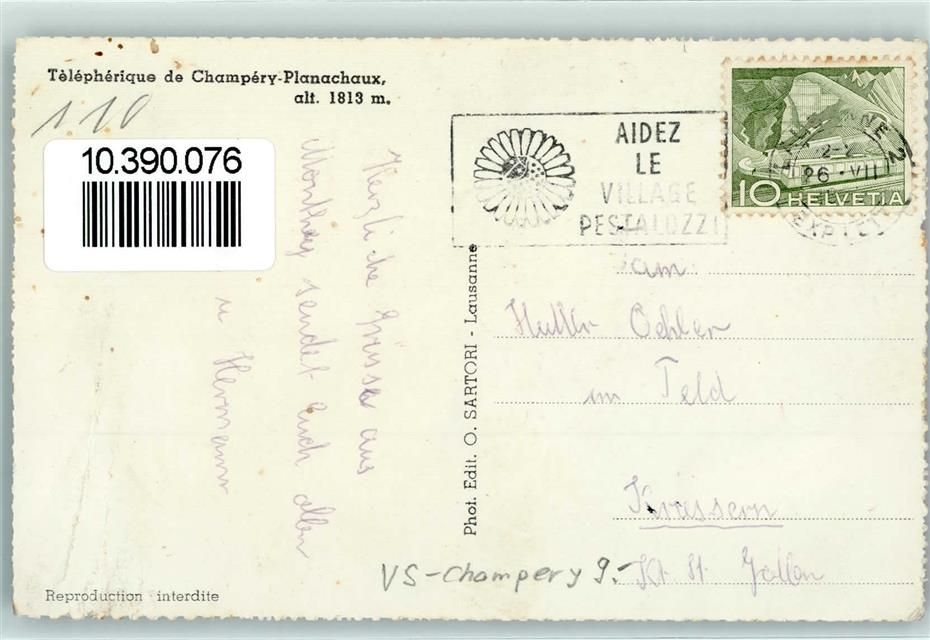 Téléphérique de Champéry-Planachaux,
alt. 1813 m.
110
10.390.076
AIDEZ
LE
VILLAGE
PESTALOZZI
LAUSANNE 2
26.VII
10 HELVETIA
Herzliche Grüsse aus
Monthey sendet Euch allen
u Hermann
Phot. Edit. O. SARTORI - Lausanne
Fam
Oehler
im Feld
Krässern
Kt. St. Gallen
VS-Champery 9.-
Reproduction interdite